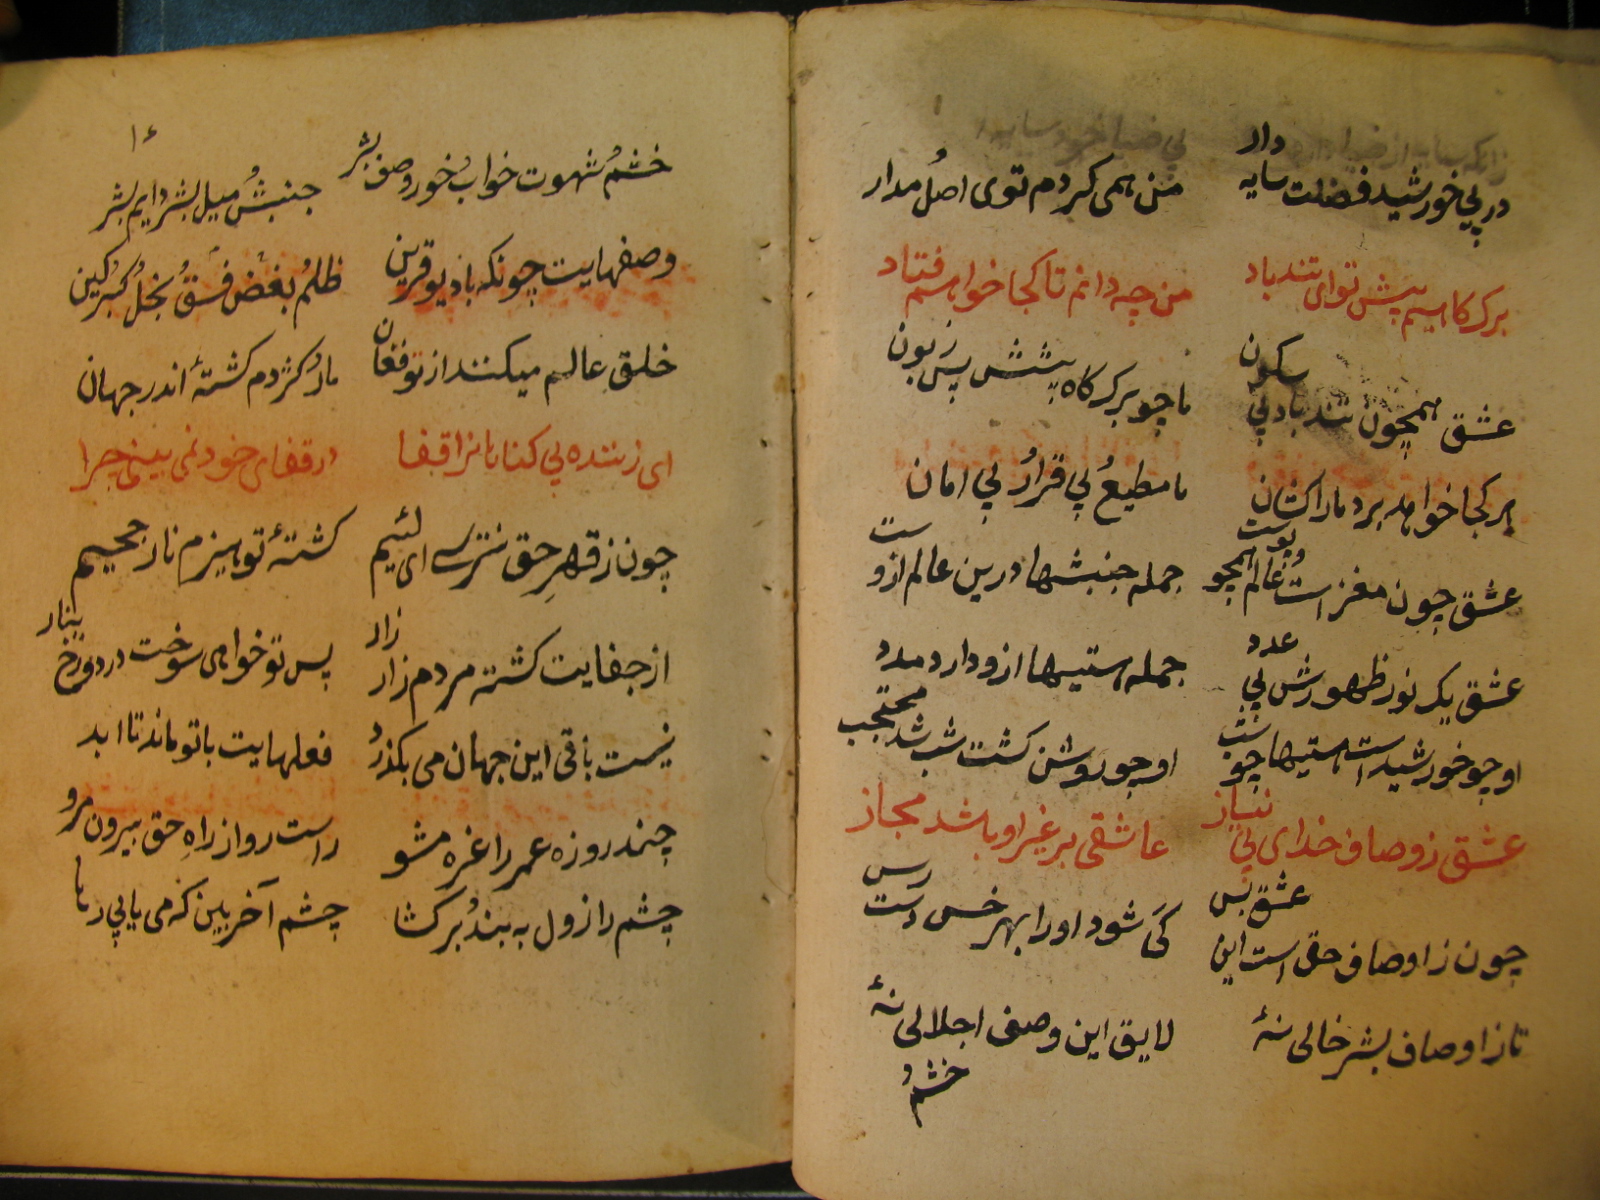 در پی خورشید فضلت سایه دار
من همی کردم توی اصل مدار
برک کاهیم پیش تو ای تندباد
من چه دانم تا کجا خواهم فتاد
عشق همچون تند باد بی سکون
ما چو برک کاه پیشش پس زبون
هر کجا خواهد برد مارا کشان
ما مطیعُ بی قرارُ بی امان
عشق چون مغز است و عالم همچو پوست
جمله جنبشها درین عالم ازوست
عشق یک نور ظهورش بی عدد
جمله هستیها ازو دارد مدد
او چو خورشید است هستیها چو شب
او چو روشن کشت شب شد محتجب
عشق ز وصاف خدای بی نیاز
عاشقی بر غیر او باشد مجاز
چون ز اوصاف حق است این عشق بس
کَی شود او را بهر خس دست رس
تا ز اوصاف بشر خالی نهٔ
لایق این وصف اجلالی نهٔ
خشمُ
۱۶
خشمُ شهوت خوابُ خور وصف بشر
جنبشُ میل بشر دایم بشر
وصفهایت چونکه با دیو قرین
ظلمُ بغضُ فسقُ بخلُ کبرُ کین
خلق عالم میکنند از تو فغان
مارُ کژدم کشتهٔ اندر جهان
ای زننده بی کناهانرا قفا
در قفای خود نمی بینی چرا
چون ز قهرِ حق نترسے ای لئیم
کشتهٔ تو هیزم نار جحیم
از جفایت کشته مردم زار زار
پس تو خواهی سوخت در دوزخ بنار
نیست باقی این جهان می بکذرد
فعلهایت با تو ماند تا ابد
چند روزه عمر را غره مشو
راست رو از راهِ حق بیرون مرو
چشم را ز ول به بندُ بر کشا
چشم آخر بین که می یابی رها